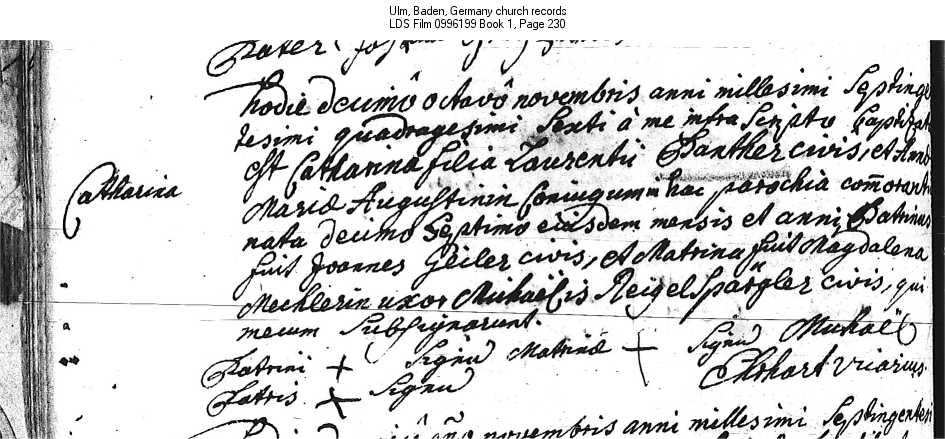 Ulm, Baden, Germany church records
LDS Film 0996199 Book 1, Page 230
Pater
hodie decimô octavô novembris anni millesimi Septinge
tesimi quadragesimi Sexti à me infra Scripto baptizata
est Catharina filia Laurentii Panther civis, et Annæ
Catharina
Mariæ Augustinin Coniugum in hac parochia com̄oranti
nata decimo Septimo eiusdem mensis et anni, Patrinus
fuit Joannes Geiler civis, et Matrina fuit Magdalena
Mechlerin uxor Michaëlis Reigelspärgler civis, qui
mecum Subsignarunt.
Patrini + Signū Matrinæ + Signū Michaël
Patris + Signū vicarius
novembris anni millesimi Septingentesi